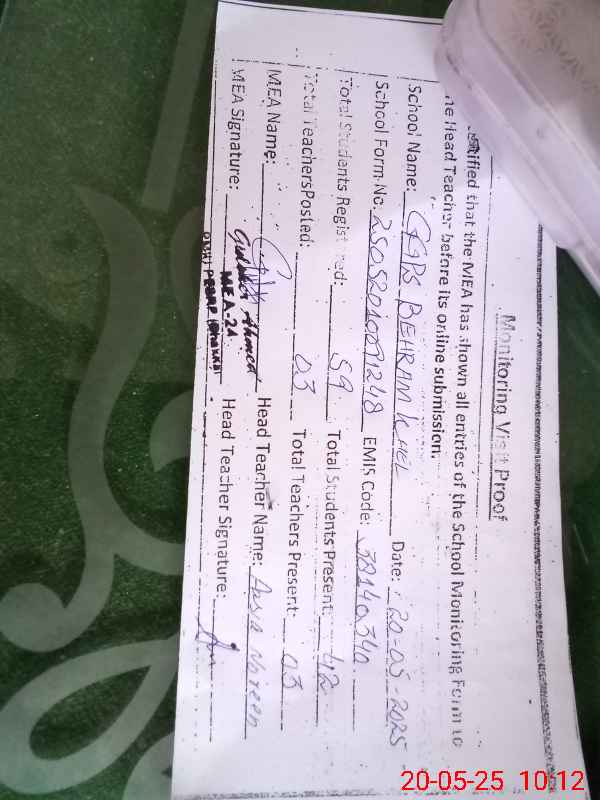 Monitoring Visit Proof
that the MEA has shown all entries of the School Monitoring Form to
Head Teacher before its online submission.
School Name: GGPS BEHRAM KHEL Date: 20-05-2025
School Form No: EMIS Code:
Total Students Registered: 59 Total Students Present: 42
Total Teachers Posted: 03 Total Teachers Present: 03
MEA Name: Head Teacher Name: Noreen
MEA Signature: Head Teacher Signature:
Ahmed
MEA-24
20-05-25 10:12